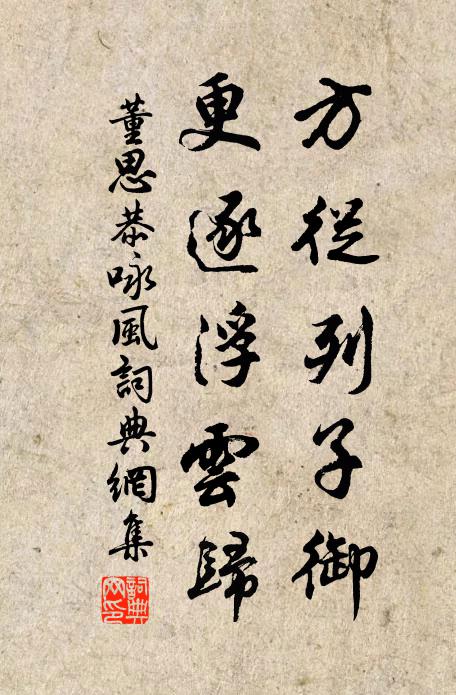 方從列子御
更逐浮雲歸
董思恭咏風詞典網集
詞典
網印